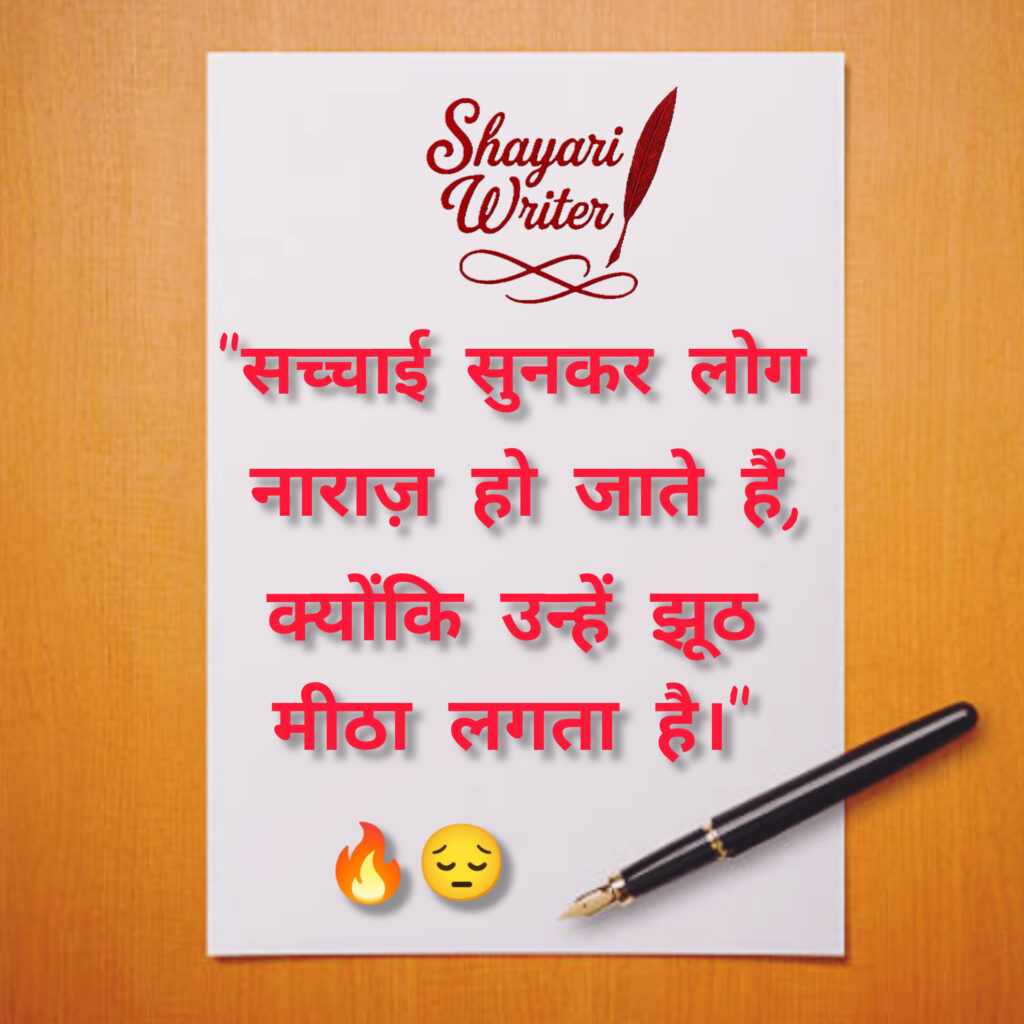 Shayari
Writer
"सच्चाई सुनकर लोग
नाराज़ हो जाते हैं,
क्योंकि उन्हें झूठ
मीठा लगता है।"
🔥😔